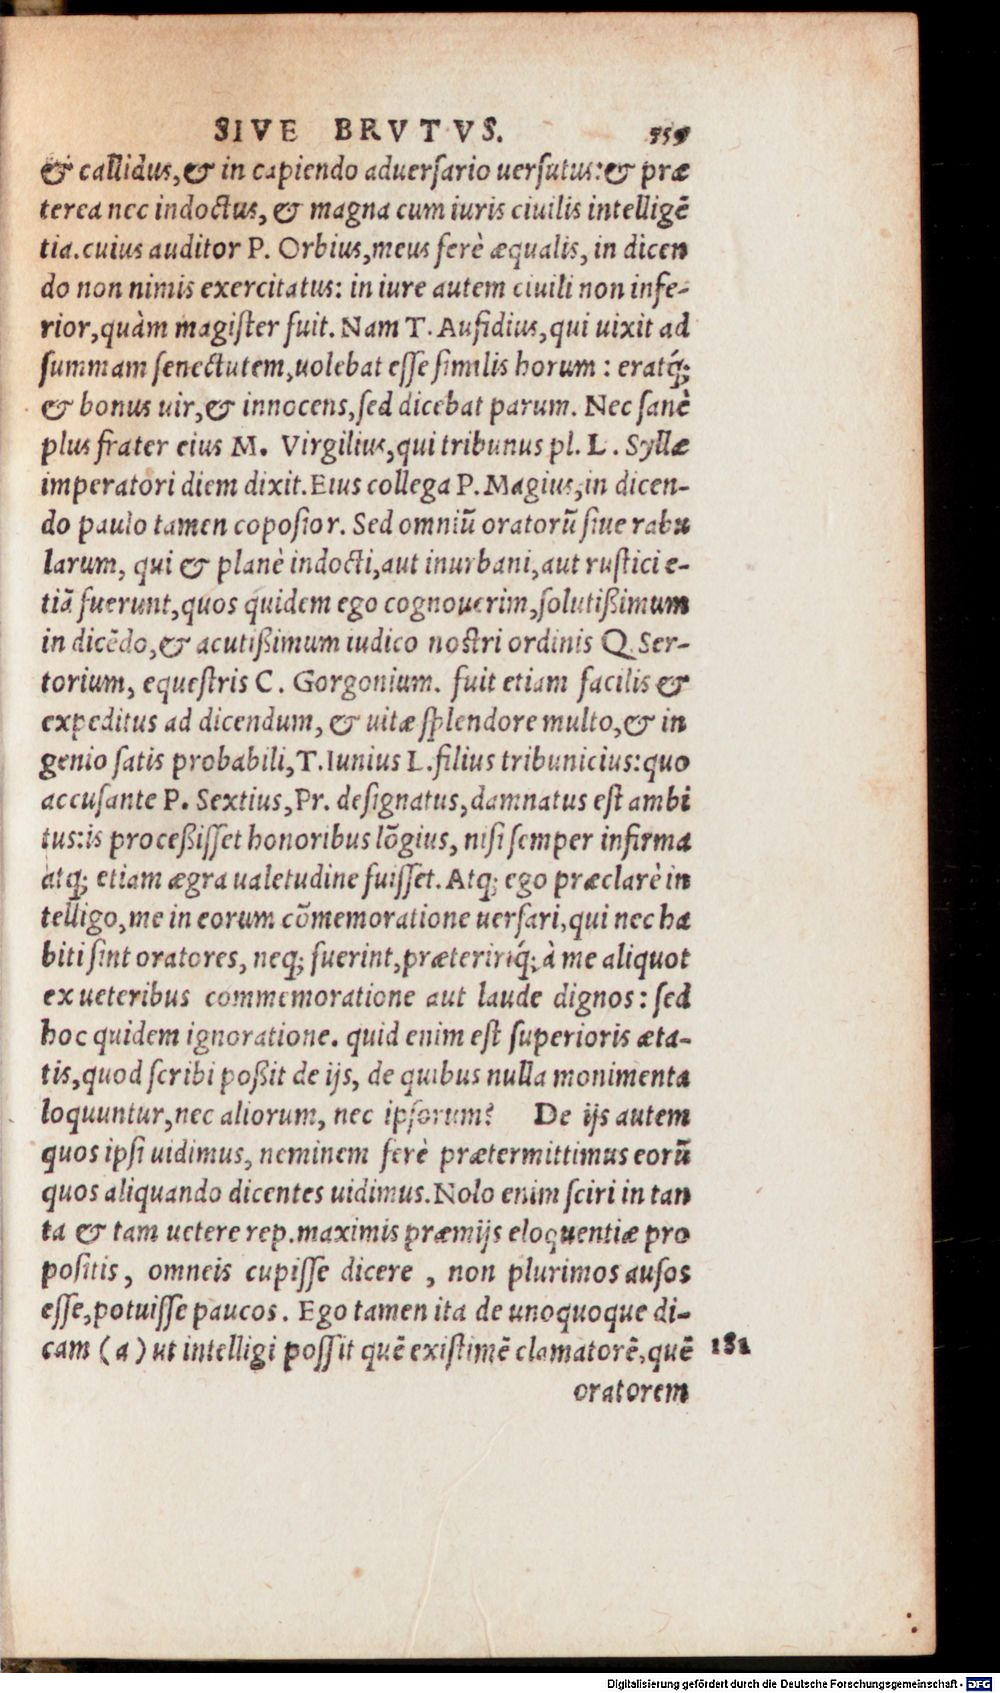 SIVE BRVTVS. 359
& callidus, & in capiendo aduersario uersutus: & præ
terea nec indoctus, & magna cum iuris ciuilis intelligē
tia. cuius auditor P. Orbius, meus ferè æqualis, in dicen
do non nimis exercitatus: in iure autem ciuili non infe-
rior, quàm magister fuit. Nam T. Aufidius, qui uixit ad
summam senectutem, uolebat esse similis horum: eratq́;
& bonus uir, & innocens, sed dicebat parum. Nec sanè
plus frater eius M. Virgilius, qui tribunus pl. L. Syllæ
imperatori diem dixit. Eius collega P. Magius, in dicen-
do paulo tamen coposior. Sed omniū oratorū siue rabu
larum, qui & planè indocti, aut inurbani, aut rustici e-
tiā fuerunt, quos quidem ego cognouerim, solutißimum
in dicēdo, & acutißimum iudico nostri ordinis Q. Ser-
torium, equestris C. Gorgonium. fuit etiam facilis &
expeditus ad dicendum, & uitæ splendore multo, & in
genio satis probabili, T. Iunius L. filius tribunicius: quo
accusante P. Sextius, Pr. designatus, damnatus est ambi
tus: is proceßisset honoribus lōgius, nisi semper infirma
atq; etiam ægra ualetudine fuisset. Atq; ego præclarè in
telligo, me in eorum cōmemoratione uersari, qui nec ha
biti sint oratores, neq; fuerint, præteririq́; à me aliquot
ex ueteribus commemoratione aut laude dignos: sed
hoc quidem ignoratione. quid enim est superioris æta-
tis, quod scribi poßit de ijs, de quibus nulla monimenta
loquuntur, nec aliorum, nec ipsorum? De ijs autem
quos ipsi uidimus, neminem ferè prætermittimus eorū
quos aliquando dicentes uidimus. Nolo enim sciri in tan
ta & tam uetere rep. maximis præmijs eloquentiæ pro
positis, omneis cupisse dicere, non plurimos ausos
esse, potuisse paucos. Ego tamen ita de unoquoque di-
cam (a) ut intelligi possit quē existimē clamatorē, quē 181
oratorem
Digitalisierung gefördert durch die Deutsche Forschungsgemeinschaft - DFG